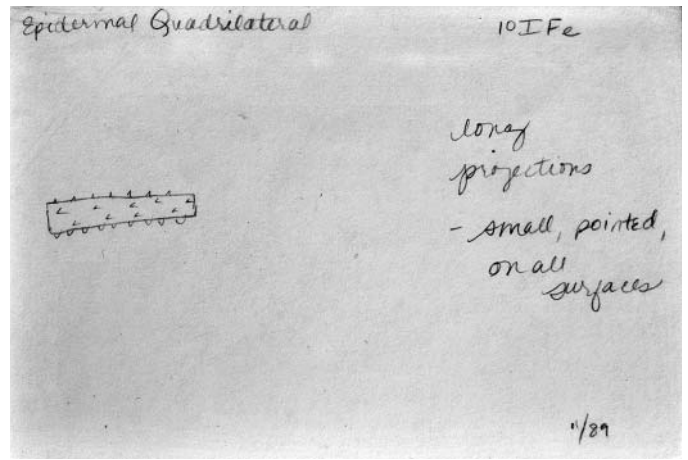 Epidermal Quadrilateral
10IFe
long
projections
- small, pointed,
on all
surfaces
11/89